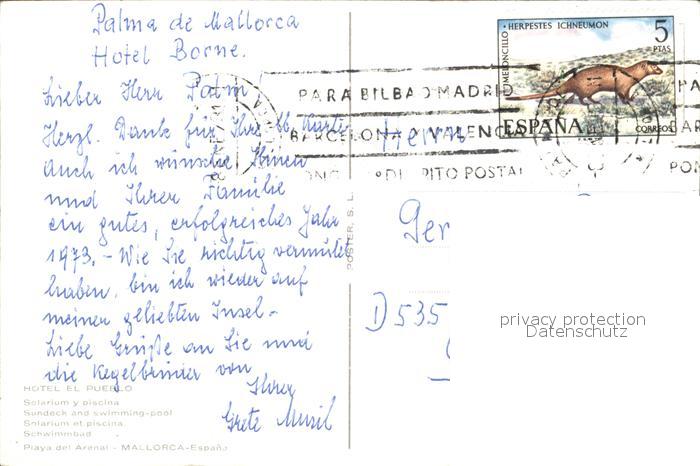 Palma de Mallorca
Hotel Borne.
Lieber Herr Palm!
Herzl. Dank für Ihre lb. Karte
Auch ich wünsche Ihnen
und Ihrer Familie
ein gutes, erfolgreiches Jahr
1973. - Wie Sie richtig vermutet
haben, bin ich wieder auf
meiner geliebten Insel -
Liebe Grüße an Sie und
die Kegelbrüder von
Ihrer
Grete
HOTEL EL PUEBLO
Solarium y piscina
Sundeck and swimming-pool
Solarium et piscina
Schwimmbad
Playa del Arenal - MALLORCA-España
POSTER, S. L.
MELONCILLO · HERPESTES ICHNEUMON
5
PTAS
ESPAÑA
CORREOS
PARA BILBAO MADRID
BARCELONA O VALENCIA
PITO POSTAL
PA
PON
Herrn
Ger
D 535
privacy protection
Datenschutz